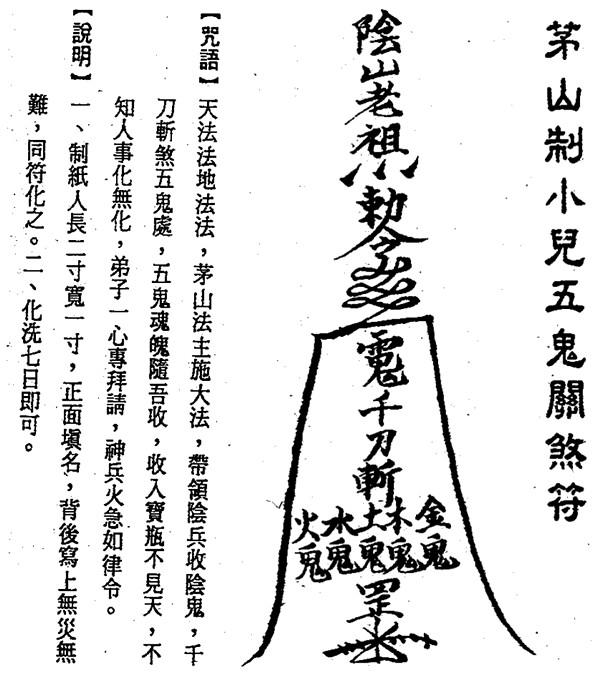 茅山制小兒五鬼關煞符
陰山老祖勅令
千刀斬
金鬼
木鬼
土鬼
水鬼
火鬼
罡
【咒語】天法法地法法，茅山法主施大法，帶領陰兵收陰鬼，千
刀斬煞五鬼處，五鬼魂魄隨吾收，收入寶瓶不見天，不
知人事化無化，弟子一心專拜請，神兵火急如律令。
【說明】一、制紙人長二寸寬一寸，正面塡名，背後寫上無災無
難，同符化之。二、化洗七日即可。